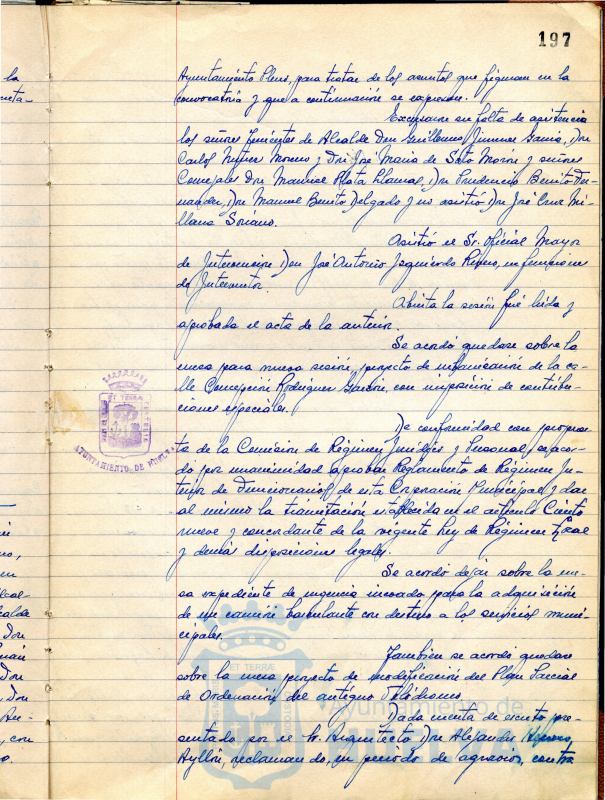 197
Ayuntamiento Pleno, para tratar de los asuntos que figuran en la
convocatoria y que a continuación se expresan.
Excusaron su falta de asistencia
los señores Tenientes de Alcalde Don Guillermo Jimenez García, Don
Carlos Nuñez Moreno y Don José María de Soto Morón y señores
Concejales Don Manuel Plata Llamas, Don Prudencio Benito Fer-
nandez, Don Manuel Benito Delgado y no asistió Don José Cruz Mi-
llano Soriano.
Asistió el Sr. Oficial Mayor
de Intervención Don José Antonio Izquierdo en funciones
de Interventor.
Abierta la sesión fué leida y
aprobada el acta de la anterior.
Se acordó quedase sobre la
mesa para nueva sesión, proyecto de urbanización de la ca-
lle Concepción Rodríguez Garzón, con imposición de contribu-
ciones especiales.
De conformidad con propues-
ta de la Comisión de Régimen Jurídico y Personal, se acor-
dó por unanimidad aprobar Reglamento de Régimen In-
terior de Funcionarios de esta Corporación Municipal y dar
al mismo la tramitación establecida en el artículo Ciento
nueve y concordante de la vigente Ley de Régimen Local
y demás disposiciones legales.
Se acordó dejar sobre la me-
sa expediente de urgencia incoado para la adquisición
de un camión basculante con destino a los servicios muni-
cipales.
También se acordó quedara
sobre la mesa proyecto de modificación del Plan Parcial
de Ordenación del antiguo Velódromo.
Dada cuenta de escrito pre-
sentado por el Sr. Arquitecto Don Alejandro
Ayllón, reclamando, en período de agravios, contra
AYUNTAMIENTO DE HUELVA
Ayuntamiento de
HUELVA